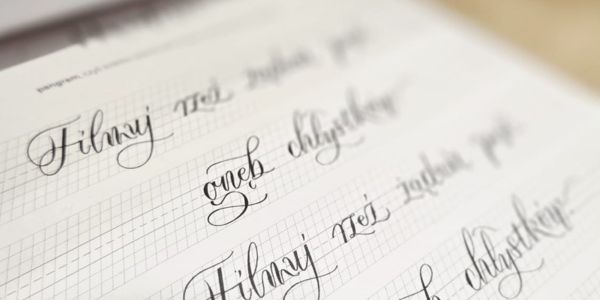 pangram, czyli
Filmuj rzeź żądań, pość,
gnęb chłystków!
Filmuj rzeź żądań, pość,
gnęb chłystków!